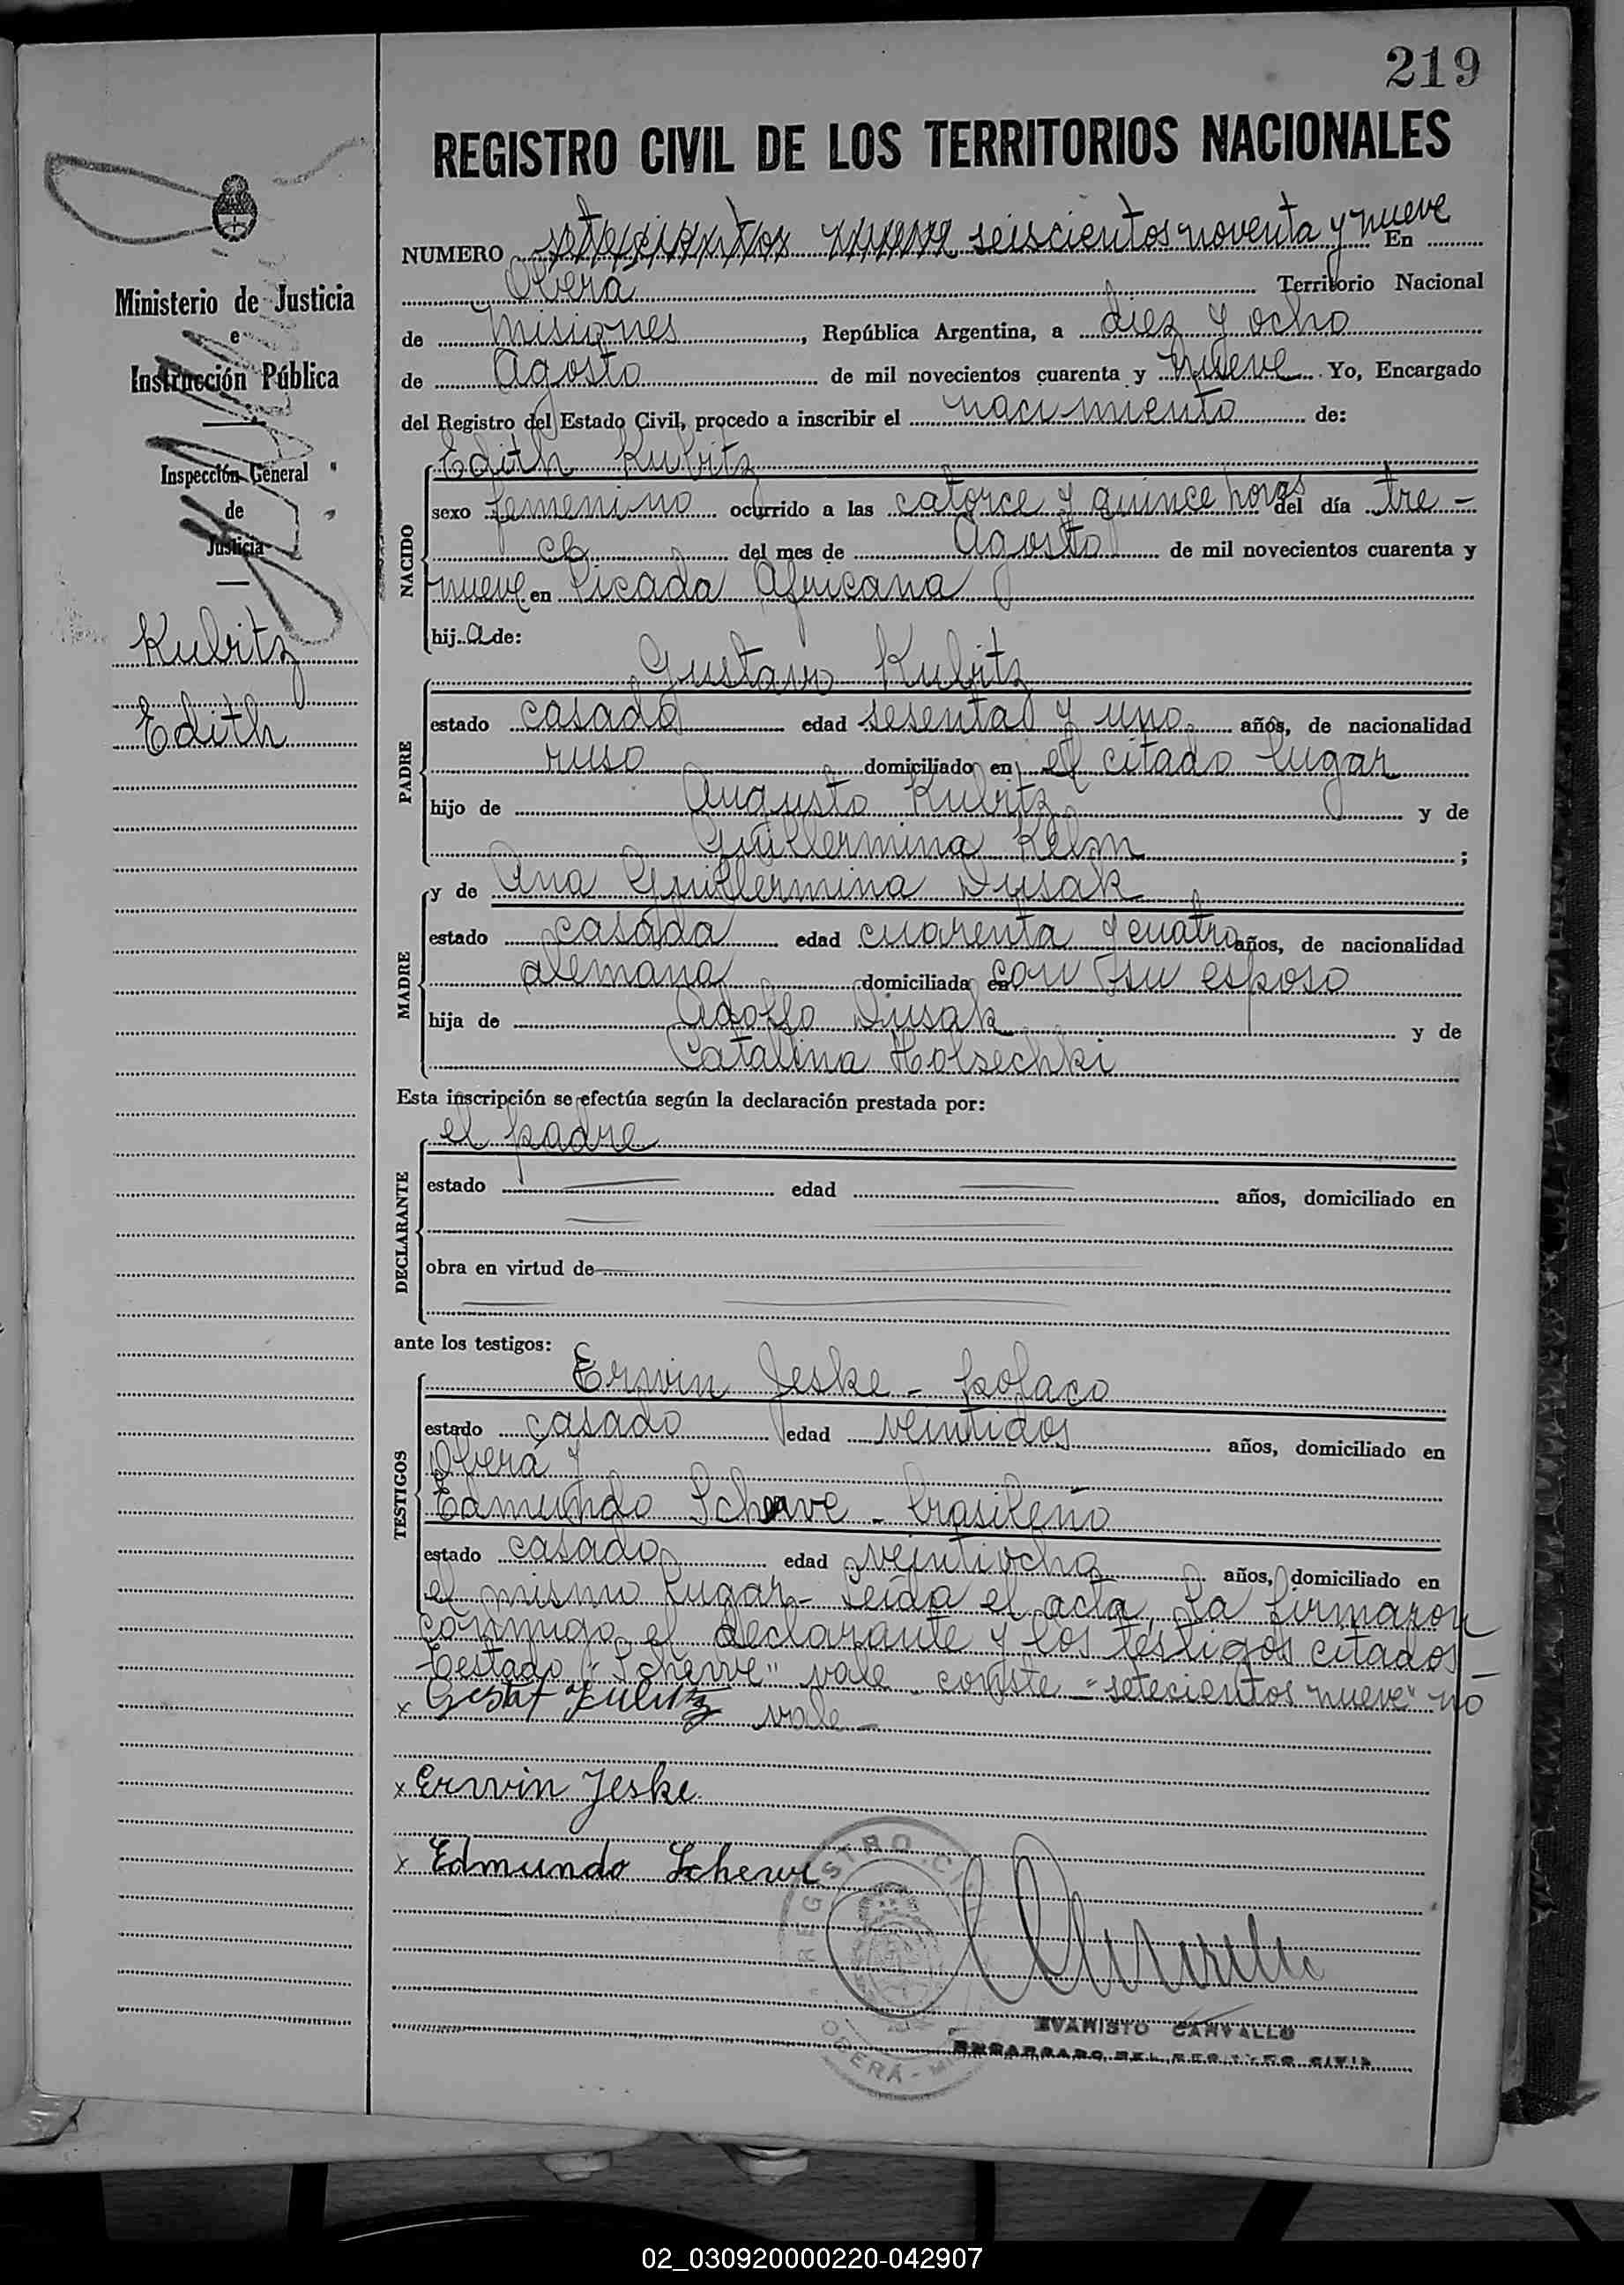 219
REGISTRO CIVIL DE LOS TERRITORIOS NACIONALES
NUMERO setecientos nueve seiscientos noventa y nueve En
Oberá Territorio Nacional
de Misiones, República Argentina, a diez y ocho
de Agosto de mil novecientos cuarenta y nueve Yo, Encargado
del Registro del Estado Civil, procedo a inscribir el nacimiento de:
Edith Kubitz
NACIDO
sexo femenino ocurrido a las catorce y quince horas del día tre-
ce del mes de Agosto de mil novecientos cuarenta y
nueve en Picada Africana
hija de:
PADRE
Gustavo Kubitz
estado casado edad sesenta y uno años, de nacionalidad
ruso domiciliado en el citado lugar
hijo de Augusto Kubitz y de
Guillermina Kelm ;
MADRE
y de Ana Guillermina Dusak
estado casada edad cuarenta y cuatro años, de nacionalidad
alemana domiciliada en con su esposo
hija de Adolfo Dusak y de
Catalina Holsechki
Esta inscripción se efectúa según la declaración prestada por:
DECLARANTE
el padre
estado edad años, domiciliado en
obra en virtud de
ante los testigos:
TESTIGOS
Erwin Jeske - polaco
estado casado edad veintidos años, domiciliado en
Oberá y
Edmundo Scherve - brasileño
estado casado edad veintiocho años, domiciliado en
el mismo lugar - Leída el acta, la firmaron
conmigo el declarante y los testigos citados -
Testado "Scherve" vale conste - "setecientos nueve" no
x Gustaf Kubitz vale -
x Erwin Jeske
x Edmundo Scherve
REGISTRO CIVIL
OBERÁ - MI
EVARISTO CARVALLO
ENCARGADO DEL REGISTRO CIVIL
Ministerio de Justicia
e
Instrucción Pública
Inspección General
de
Justicia
Kubitz
Edith
02_030920000220-042907